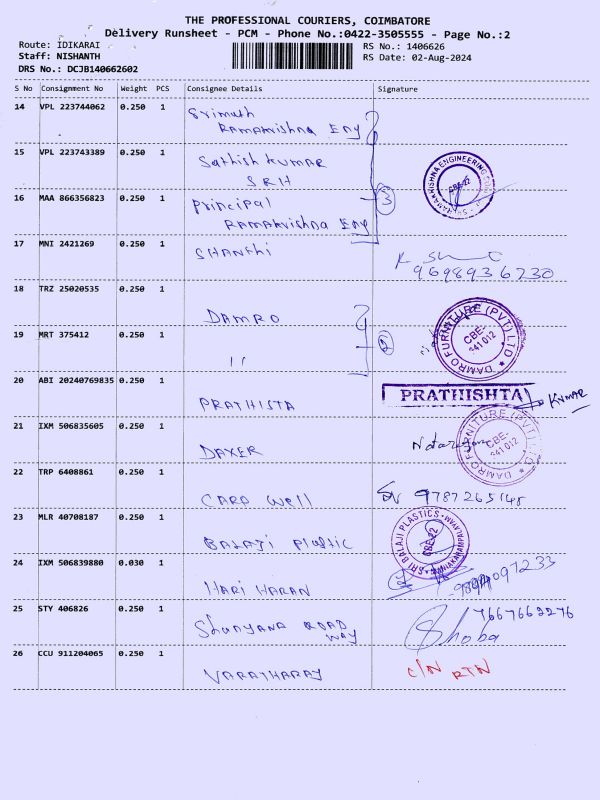 THE PROFESSIONAL COURIERS, COIMBATORE
Delivery Runsheet - PCM - Phone No.:0422-3505555 - Page No.:2
Route: IDIKARAI
RS No.: 1406626
Staff: NISHANTH
RS Date: 02-Aug-2024
DRS No.: DCJB140662602
S No Consignment No Weight PCS Consignee Details Signature
14 VPL 223744062 0.250 1 Srimuth
Ramakrishna Eng
15 VPL 223743389 0.250 1 Sathish kumar
SRH
16 MAA 866356823 0.250 1 Principal
Ramakrishna Eng
3
17 MNI 2421269 0.250 1 SHANthi
9698936730
18 TRZ 25020535 0.250 1 DAMRO
DAMRO FURNITURE (PVT) LTD
CBE-
641 012
19 MRT 375412 0.250 1 11
2
20 ABI 20240769835 0.250 1 PRATHISTA
PRATHISHTA
KUMAR
21 IXM 506835605 0.250 1 DAXER
Natarajan
FURNITURE (PVT) LTD
CBE-
641 012
22 TRP 6408861 0.250 1 CARD Well
9787265148
23 MLR 40708187 0.250 1 BALAJI Plastic
SRI BALAJI PLASTICS
CBE-22
24 IXM 506839880 0.030 1 HARI HARAN
25 STY 406826 0.250 1 Shuayana ROAD
WAY
7667662276
Shoba
26 CCU 911204065 0.250 1 VARATHARAJ
C/N RTN